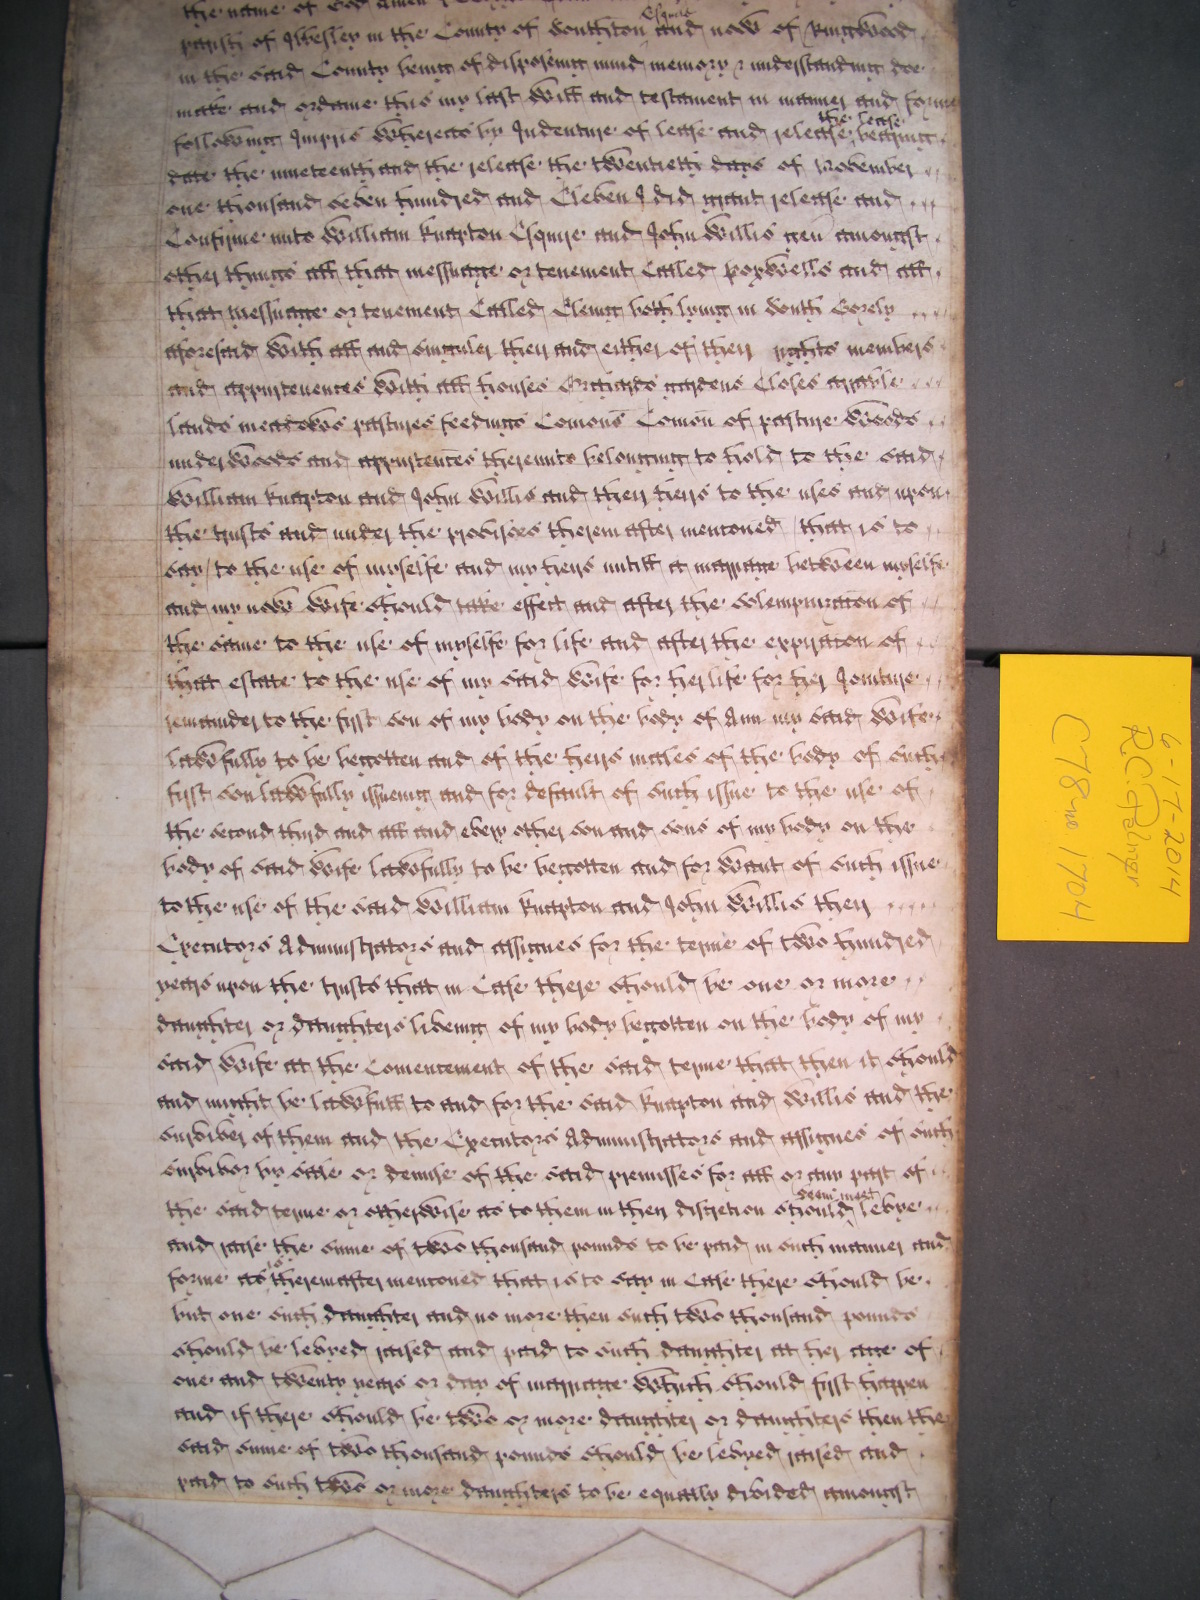 the name of God Amen I
parish of Ibesley in the County of Southton Esquire and now of Ringwood
in the said County being of disposeing mind memory & understanding doe
make and ordaine this my last Will and testament in manner and forme
following Impris Whereas by Indenture of lease and release the lease bearing
date the nineteenth and the release the twentieth days of November
one thousand seven hundred and Eleven I did grant release and
Confirme unto William Knapton Esquire and John Willis gen amongst
other things all that messuage or tenement Called poxwells and all
that messuage or tenement Called Cleing both lying in South Gorely
aforesaid With all and singuler their and either of their rights members
and appurtenences With all houses Orchards gardens Closes arrable
lands meadows pastures feedings Comons Comon of pasture Woods
underwoods and appurtences thereunto belonging to hold to the said
William Knapton and John Willis and their heirs to the uses and upon
the trusts and under the provisoes therein after mentoned that is to
say to the use of myselfe and my heirs untill a marriage between myselfe
and my now Wife should take effect and after the solempnizacon of
the same to the use of myselfe for life and after the expiration of
that estate to the use of my said Wife for her life for her Jointure
remainder to the first son of my body on the body of Ann my said Wife
lawfully to be begotten and of the heirs males of the body of such
first son lawfully issueing and for default of such issue to the use of
the second third and all and every other son and sons of my body on the
body of said Wife lawfully to be begotten and for want of such issue
to the use of the said William Knapton and John Willis their
Executors Administrators and assignes for the terme of two hundred
years upon the trusts that in Case there should be one or more
daughter or daughters liveing of my body begotten on the body of my
said Wife at the Comencement of the said terme that then it should
and might be lawfull to and for the said Knapton and Willis and the
surviver of them and the Executors Administrators and assignes of such
survivor by sale or demise of the said premisses for all or any part of
the said terme or otherwise as to them in their discretion should seem meet levye
and raise the sume of two thousand pounds to be paid in such manner and
forme as is thereinafter mentoned that is to say in Case there should be
but one such daughter and no more then such two thousand pounds
should be levyed raised and paid to such daughter at her age of
one and twenty years or day of marriage Which should first happen
and if there should be two or more daughter or daughters then the
said sume of two thousand pounds should be levyed raised and
paid to such two or more daughters to be equally divided amongst
6-17-2014
RC Palmer
C78 no 1704